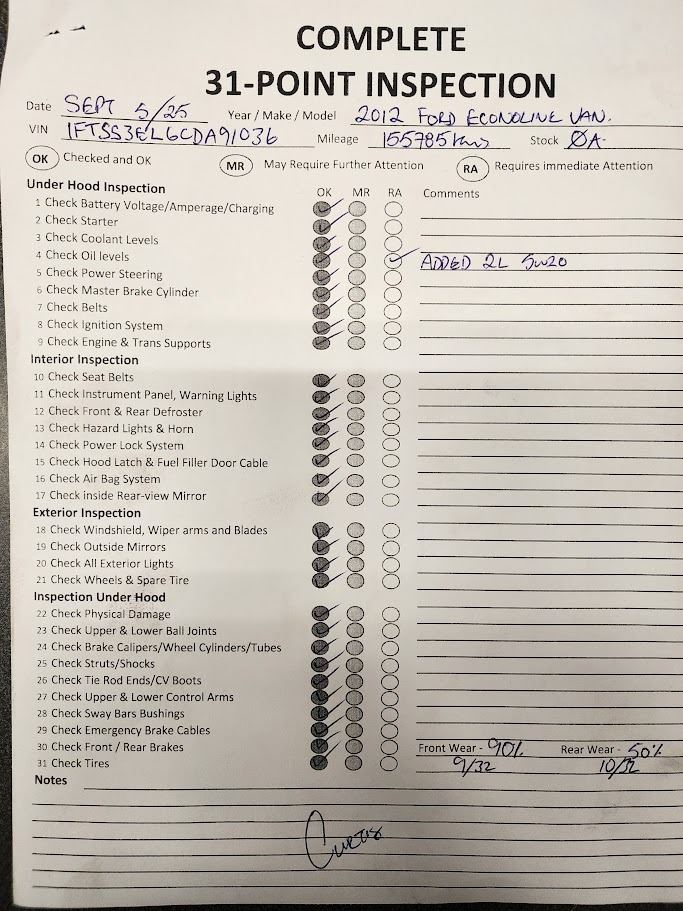 COMPLETE
31-POINT INSPECTION
Date SEPT 5/25 Year / Make / Model 2012 FORD ECONOLINE VAN.
VIN 1FTSS3EL6CDA91036 Mileage 155785 kms Stock ØA-
OK Checked and OK MR May Require Further Attention RA Requires immediate Attention
Under Hood Inspection OK MR RA Comments
1 Check Battery Voltage/Amperage/Charging
2 Check Starter
3 Check Coolant Levels
4 Check Oil levels ADDED 2L 5W20
5 Check Power Steering
6 Check Master Brake Cylinder
7 Check Belts
8 Check Ignition System
9 Check Engine & Trans Supports
Interior Inspection
10 Check Seat Belts
11 Check Instrument Panel, Warning Lights
12 Check Front & Rear Defroster
13 Check Hazard Lights & Horn
14 Check Power Lock System
15 Check Hood Latch & Fuel Filler Door Cable
16 Check Air Bag System
17 Check inside Rear-view Mirror
Exterior Inspection
18 Check Windshield, Wiper arms and Blades
19 Check Outside Mirrors
20 Check All Exterior Lights
21 Check Wheels & Spare Tire
Inspection Under Hood
22 Check Physical Damage
23 Check Upper & Lower Ball Joints
24 Check Brake Calipers/Wheel Cylinders/Tubes
25 Check Struts/Shocks
26 Check Tie Rod Ends/CV Boots
27 Check Upper & Lower Control Arms
28 Check Sway Bars Bushings
29 Check Emergency Brake Cables
30 Check Front / Rear Brakes Front Wear - 90% Rear Wear - 50%
31 Check Tires 9/32 10/32
Notes
Curtis